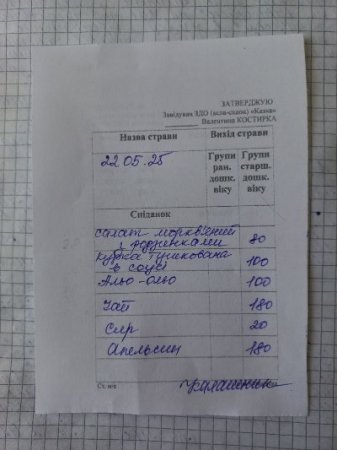 ЗАТВЕРДЖУЮ
Завідувач ЗДО (ясла-садок) «Казка»
Валентина КОСТИРКА
Назва страви Вихід страви
22.05.25 Групи ран. дошк. віку Групи старш. дошк. віку
Сніданок
салат моркв'яний
з родзинками 80
тушкована
в соусі 100
Алью-олью 100
Чай 180
Сир 20
Апельсин 180
Ст. м/с